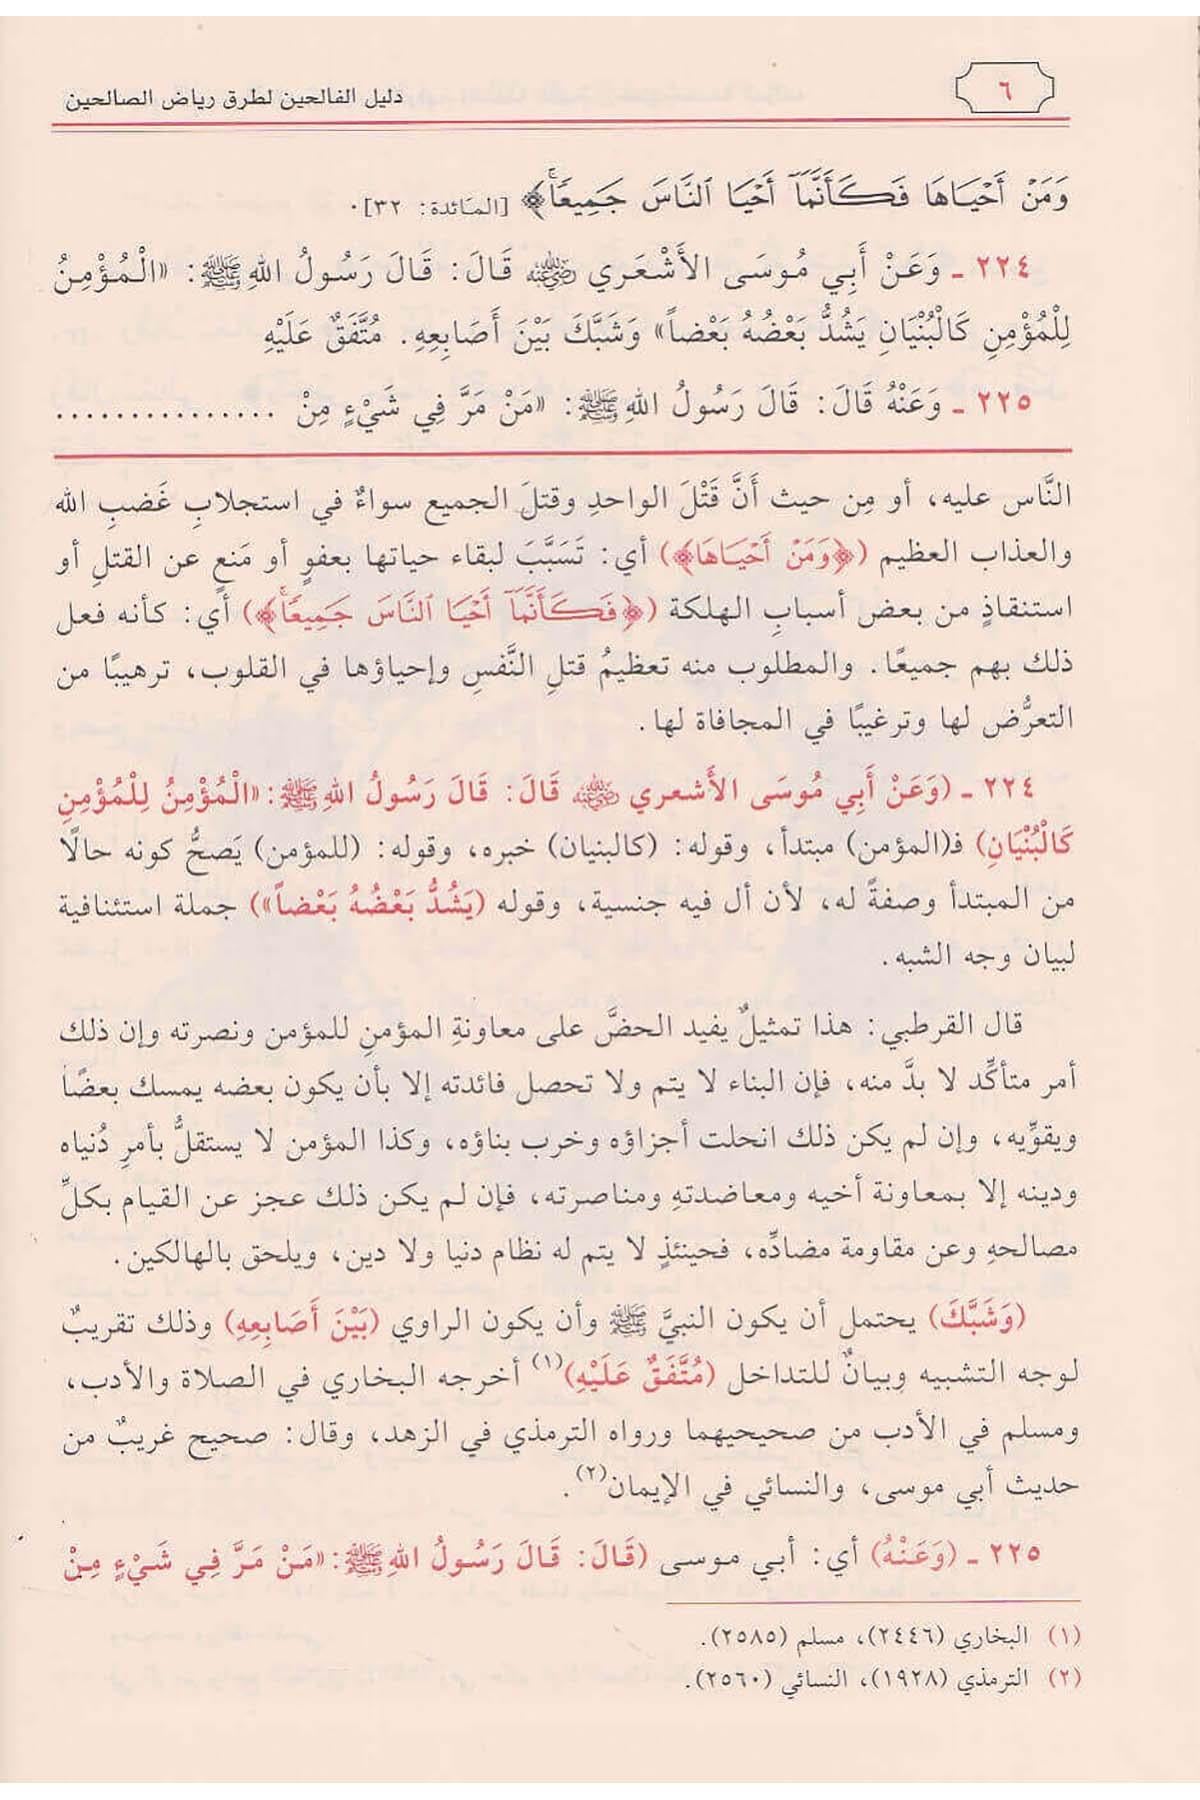 ٦
دليل الفالحين لطرق رياض الصالحين
وَمَنْ أَحْيَاهَا فَكَأَنَّمَآ أَحْيَا ٱلنَّاسَ جَمِيعًاۚ﴾ [المائدة: ٣٢].
٢٢٤ ـ وَعَنْ أَبِي مُوسَى الأَشْعَري رضي الله عنه قَالَ: قَالَ رَسُولُ اللهِ ﷺ: «الْمُؤْمِنُ
لِلْمُؤْمِنِ كَالْبُنْيَانِ يَشُدُّ بَعْضُهُ بَعْضاً» وَشَبَّكَ بَيْنَ أَصَابِعِهِ. مُتَّفَقٌ عَلَيْهِ
٢٢٥ ـ وَعَنْهُ قَالَ: قَالَ رَسُولُ اللهِ ﷺ: «مَنْ مَرَّ فِي شَيْءٍ مِنْ ...............
النَّاس عليه، أو مِن حيث أَنَّ قَتْلَ الواحدِ وقتلَ الجميع سواءٌ في استجلابِ غَضبِ الله
والعذاب العظيم (﴿وَمَنْ أَحْيَاهَا﴾) أي: تَسَبَّبَ لبقاء حياتها بعفوٍ أو مَنعٍ عن القتلِ أو
استنقاذٍ من بعض أسبابِ الهلكة (﴿فَكَأَنَّمَآ أَحْيَا ٱلنَّاسَ جَمِيعًاۚ﴾) أي: كأنه فعل
ذلك بهم جميعًا. والمطلوب منه تعظيمُ قتلِ النَّفسِ وإحياؤها في القلوب، ترهيبًا من
التعرُّض لها وترغيبًا في المجافاة لها.
٢٢٤ ـ (وَعَنْ أَبِي مُوسَى الأَشعري رضي الله عنه قَالَ: قَالَ رَسُولُ اللهِ ﷺ: «الْمُؤْمِنُ لِلْمُؤْمِنِ
كَالْبُنْيَانِ) فـ(المؤمن) مبتدأ، وقوله: (كالبنيان) خبره، وقوله: (للمؤمن) يَصحُّ كونه حالًا
من المبتدأ وصفةً له، لأن أل فيه جنسية، وقوله (يَشُدُّ بَعْضُهُ بَعْضاً») جملة استئنافية
لبيان وجه الشبه.
قال القرطبي: هذا تمثيلٌ يفيد الحضَّ على معاونةِ المؤمنِ للمؤمن ونصرته وإن ذلك
أمر متأكِّد لا بدَّ منه، فإن البناء لا يتم ولا تحصل فائدته إلا بأن يكون بعضه يمسك بعضًا
ويقوِّيه، وإن لم يكن ذلك انحلت أجزاؤه وخرب بناؤه، وكذا المؤمن لا يستقلُّ بأمرِ دُنياه
ودينه إلا بمعاونة أخيه ومعاضدتهِ ومناصرته، فإن لم يكن ذلك عجز عن القيام بكلِّ
مصالحهِ وعن مقاومة مضادِّه، فحينئذٍ لا يتم له نظام دنيا ولا دين، ويلحق بالهالكين.
(وَشَبَّكَ) يحتمل أن يكون النبيَّ ﷺ وأن يكون الراوي (بَيْنَ أَصَابِعِهِ) وذلك تقريبٌ
لوجه التشبيه وبيانٌ للتداخل (مُتَّفَقٌ عَلَيْهِ)(١) أخرجه البخاري في الصلاة والأدب،
ومسلم في الأدب من صحيحيهما ورواه الترمذي في الزهد، وقال: صحيح غريبٌ من
حديث أبي موسى، والنسائي في الإيمان(٢).
٢٢٥ ـ (وَعَنْهُ) أي: أبي موسى (قَالَ: قَالَ رَسُولُ اللهِ ﷺ: «مَنْ مَرَّ فِي شَيْءٍ مِنْ
(١) البخاري (٢٤٤٦)، مسلم (٢٥٨٥).
(٢) الترمذي (١٩٢٨)، النسائي (٢٥٦٠).